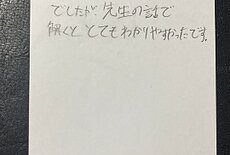 でしたが、先生の話で
解くと とてもわかりやすかったです。